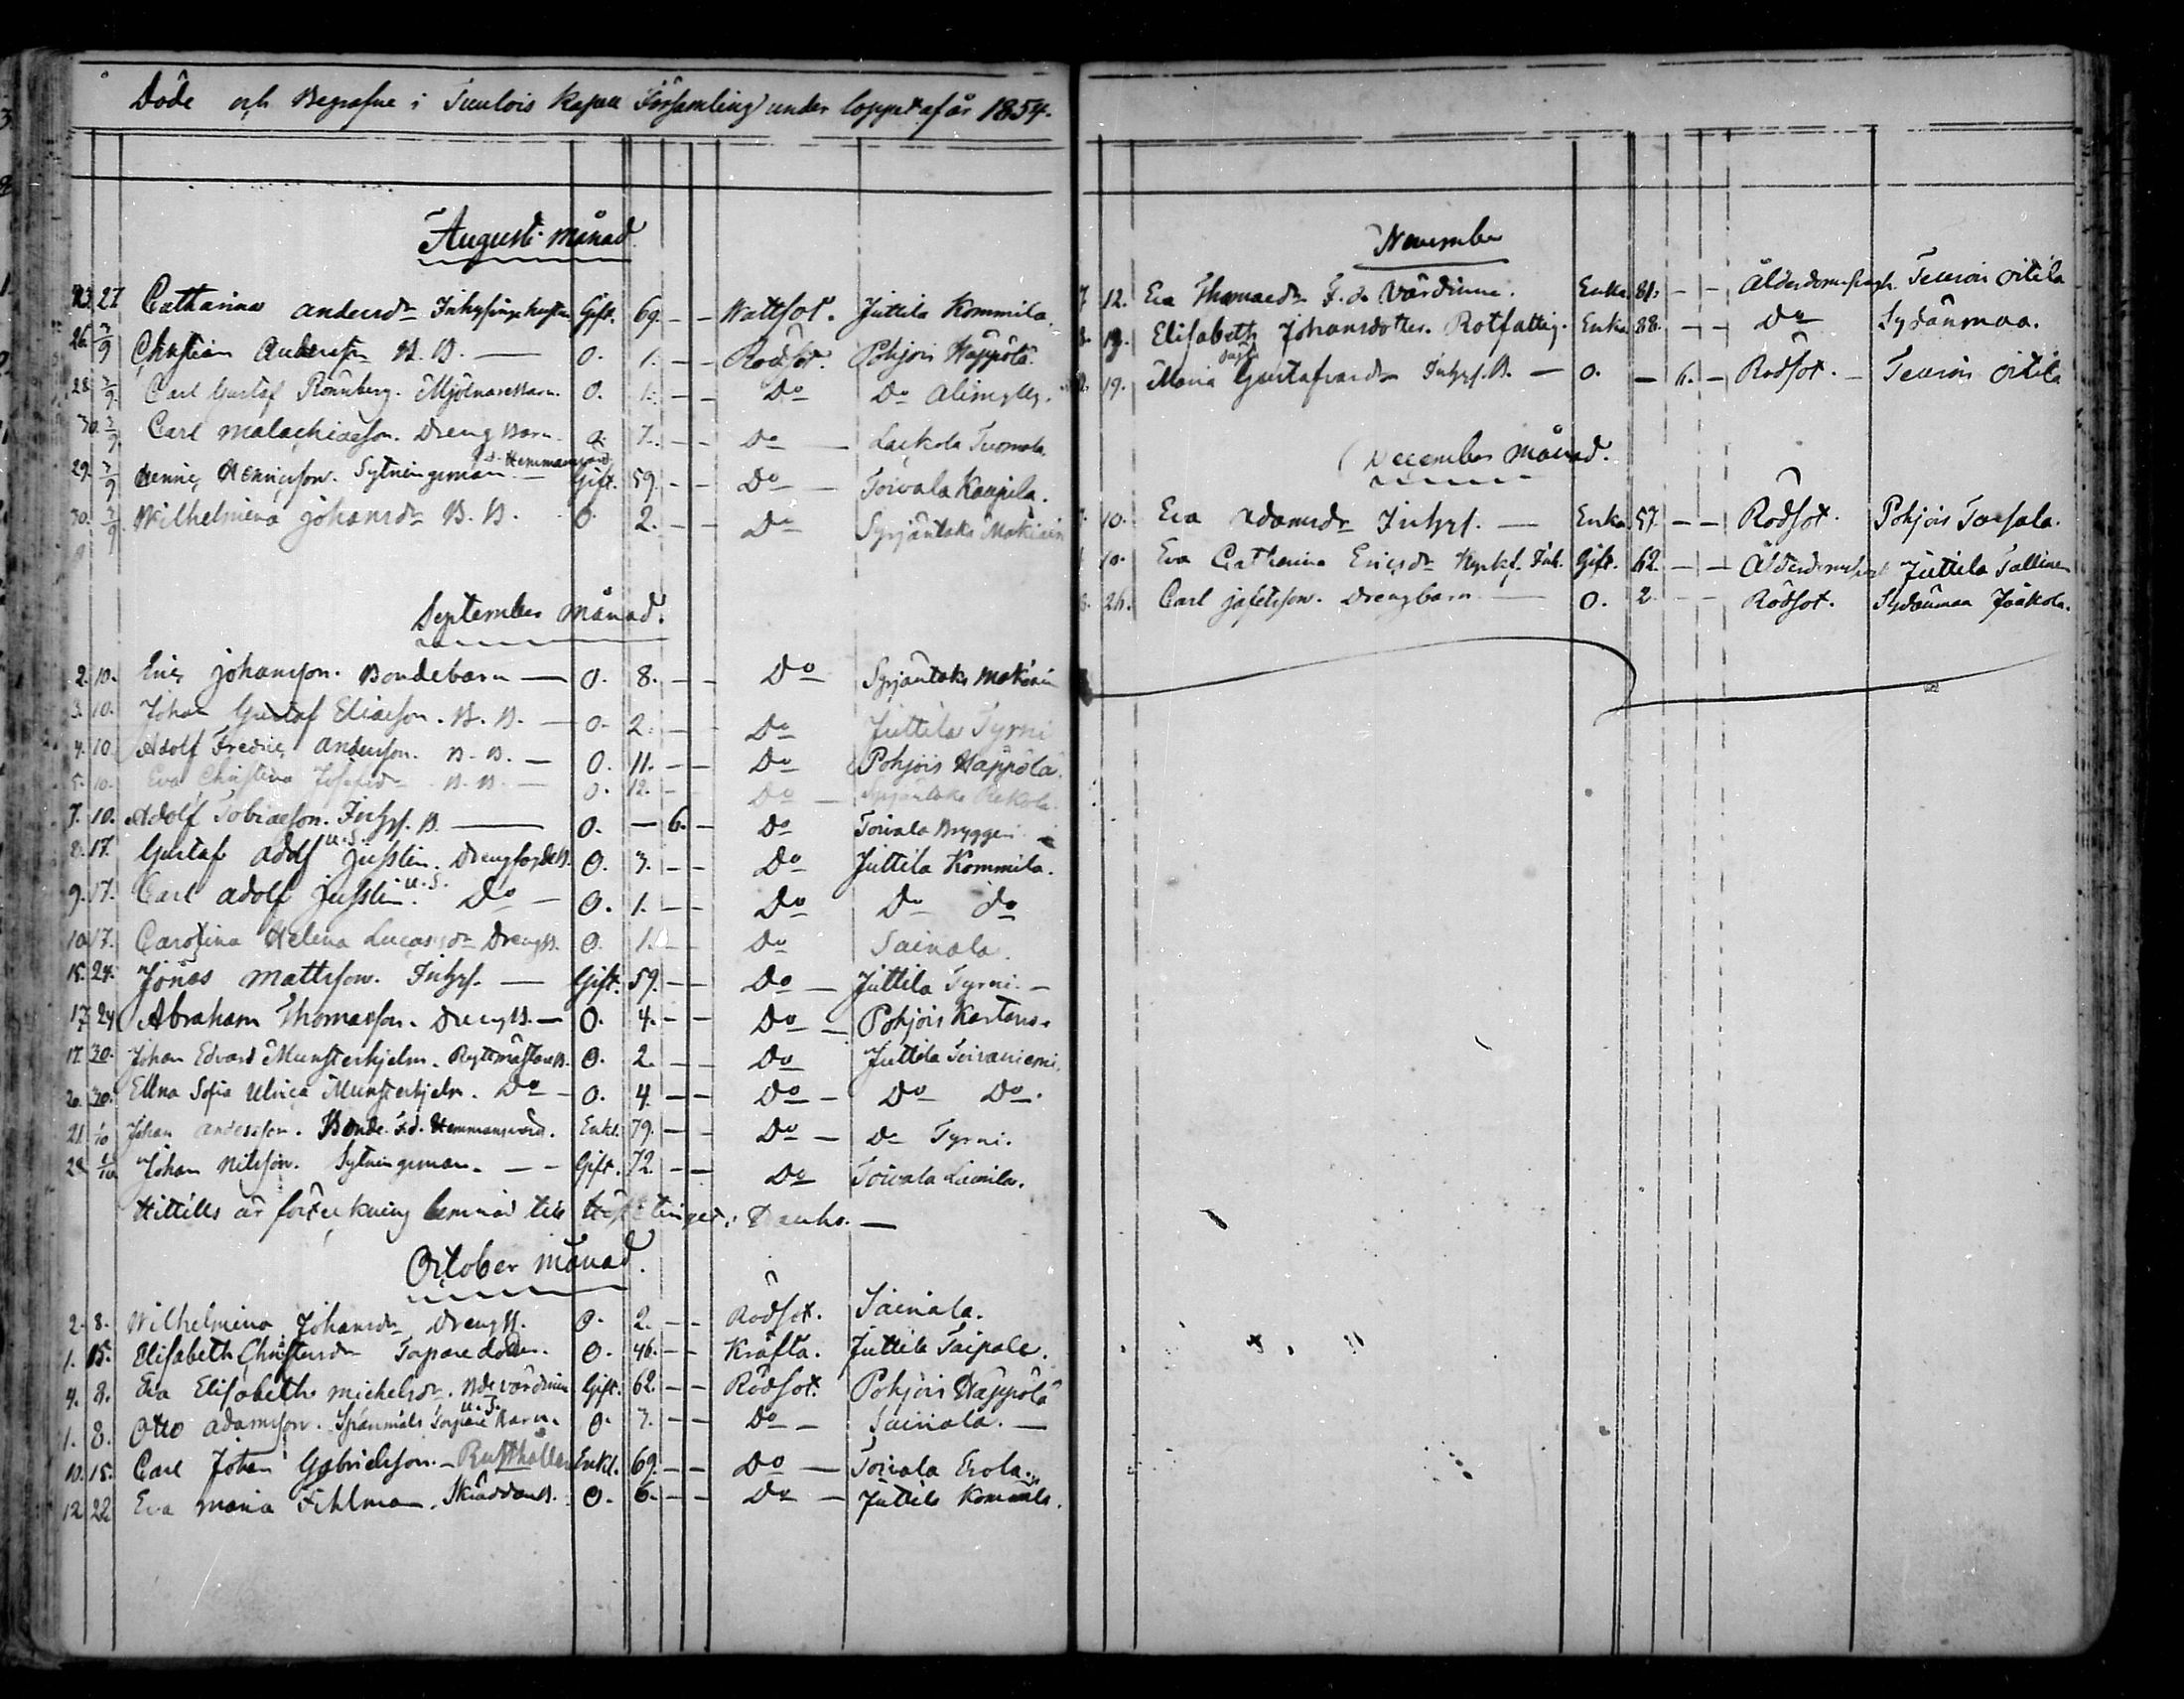 Döde och Begrafne i Tuulois Kapell Församling under loppet af år 1854.
Augusti månad
23. 27. Catharina Andersdr Inhysinge hustru Gift. 69. - - Wattsot. Juttila Kommila.
26. 3/9 Christian Andersson B. B. — O. 1. - - Rödsot. Pohjois Häppölä.
28. 3/9 Carl Gustaf Rönnberg. Mjölnarebarn. O. 1. - - Do Do Alimylly.
30. 3/9 Carl Malachiasson. Dreng Barn O. 7. - - Do — Laikola Tuomola.
29. 3/9 Henric Henricsson. Sytningsman f.d. Hemmansvärd Gift. 59. - - Do — Toivala Kaupila.
30. 3/9 Wilhelmina Johansdr B. B. O. 2. - - Do Syrjäntaka Mäkiäin
September månad.
2. 10. Eric Johansson. Bondebarn — O. 8. - - Do Syrjäntaka Mäkiäin
3. 10. Johan Gustaf Eliasson. B. B. — O. 2. - - Do Juttila Tyrni
4. 10. Adolf Fredric Andersson. B. B. — O. 11. - - Do Pohjois Häppölä.
5. 10. Eva Christina Josefsdr B. B. — O. 12. - - Do — Syrjäntaka Rekola.
7. 10. Adolf Tobiasson. Inhys. B. — O. — 6. - Do Toivala Bryggeri
8. 17. Gustaf Adolf Jusslin. u. S. Drengfogde B. O. 3. - - Do Juttila Kommila.
9. 17. Carl Adolf Jusslin. u. S. Do — O. 1. - - Do Do do
10. 17. Carolina Helena Lucasdr Dreng B. O. 1. - - Do Sainala.
15. 24. Jonas Mattsson. Inhys. — Gift. 59. - - Do — Juttila Tyrni. —
17. 24. Abraham Thomasson. Dreng B. — O. 4. - - Do — Pohjois Kartano.
17. 30. Johan Edvard Munsterhjelm. Ryttmästare B. O. 2. - - Do Juttila Toivaniemi.
20. 30. Ellna Sofia Ulrica Munsterhjelm. Do — O. 4. - - Do — Do Do.
21. 1/10 Johan Andersson. Bonde. F.d. Hemmansvärd. Enkl. 79. - - Do — Do Tyrni.
28. 1/10 Johan Nilsson. Sytningsman. — — Gift. 72. - - Do Toivala Liimila.
Hittills är förteckning lemnad till Hösttinget i Lauko. —
October månad.
2. 8. Wilhelmina Johansdr Dreng B. O. 2. - - Rödsot. Sainala.
1. 15. Elisabeth Christersdr Torparedotter. O. 46. - - Kräfta. Juttila Taipale.
4. 8. Eva Elisabeth Michelsdr. Bdevärdinna Gift. 62. - - Rödsot. Pohjois Häppölä
1. 8. Otto Adamsson. u. S. Spanmåls Torpare Barn. O. 3. - - Do — Sainala. —
10. 15. Carl Johan Gabrielsson. — Rusthållare Enkl. 69. - - Do — Toivala Erola.
12. 22. Eva Maria Fihlman. Skräddare B. O. 6. - - Do — Juttila Kommila.
November
7. 12. Eva Thomasdr F. d. Värdinna. Enka. 81. - - Ålderdomsbräckl. Teuron Oitila
8. 19. Elisabeth Johansdotter. Rotfattig. Enka 88. - - Do Sydänmaa.
19. Maria Gustafvasdr Inhys. B. — O. — 6. - Rödsot. — Teuron Oitila
December månad.
10. Eva Adamsdr Inhys. — Enka 57. - - Rödsot. Pohjois Tarsala.
10. Eva Catharina Ericsdr Kyrkf. Inh. Gift. 62. - - Ålderdomsbräckl. Juttila Tallinen
26. Carl Jafetsson. Drengbarn — O. 2. - - Rödsot. Sydänmaa Jaakola.